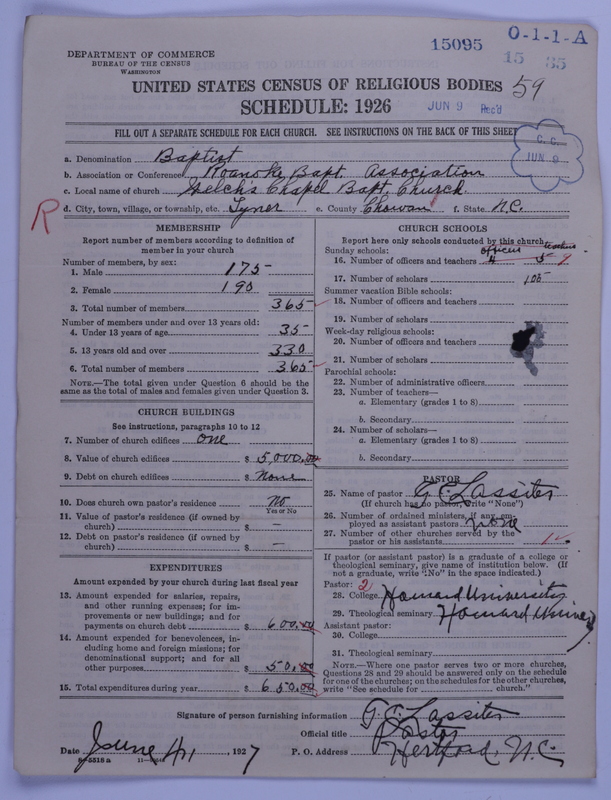 15095
O-1-1-A
15 35
DEPARTMENT OF COMMERCE
BUREAU OF THE CENSUS
WASHINGTON
UNITED STATES CENSUS OF RELIGIOUS BODIES 59
SCHEDULE: 1926
JUN 9 Rec'd
FILL OUT A SEPARATE SCHEDULE FOR EACH CHURCH. SEE INSTRUCTIONS ON THE BACK OF THIS SHEET
G. C.
JUN 9
a. Denomination Baptist
b. Association or Conference Roanoke Bapt. Association
c. Local name of church Welch's Chapel Bapt. Church
R
d. City, town, village, or township, etc. Tyner e. County Chowan f. State N.C.
MEMBERSHIP
Report number of members according to definition of
member in your church
Number of members, by sex:
1. Male 175
2. Female 190
3. Total number of members 365
Number of members under and over 13 years old:
4. Under 13 years of age 35
5. 13 years old and over 330
6. Total number of members 365
NOTE.—The total given under Question 6 should be
the same as the total of males and females given under Question 3.
CHURCH BUILDINGS
See instructions, paragraphs 10 to 12
7. Number of church edifices one
8. Value of church edifices $ 5,000.00
9. Debt on church edifices $ None
10. Does church own pastor's residence No
Yes or No
11. Value of pastor's residence (if owned by
church) $ —
12. Debt on pastor's residence (if owned by
church) $ —
EXPENDITURES
Amount expended by your church during last fiscal year
13. Amount expended for salaries, repairs,
and other running expenses; for im-
provements or new buildings; and for
payments on church debt $ 600.00
14. Amount expended for benevolences, in-
cluding home and foreign missions; for
denominational support; and for all
other purposes $ 50.00
15. Total expenditures during year $ 650.00
CHURCH SCHOOLS
Report here only schools conducted by this church
Sunday schools: officers teachers
16. Number of officers and teachers 4 5 9
17. Number of scholars 105
Summer vacation Bible schools:
18. Number of officers and teachers
19. Number of scholars
Week-day religious schools:
20. Number of officers and teachers
21. Number of scholars
Parochial schools:
22. Number of administrative officers
23. Number of teachers—
a. Elementary (grades 1 to 8)
b. Secondary
24. Number of scholars—
a. Elementary (grades 1 to 8)
b. Secondary
PASTOR
25. Name of pastor G. C. Lassiter
(If church has no pastor, write "None")
26. Number of ordained ministers, if any em-
ployed as assistant pastors none
27. Number of other churches served by the
pastor or his assistants
If pastor (or assistant pastor) is a graduate of a college or
theological seminary, give name of institution below. (If
not a graduate, write "No" in the space indicated.)
Pastor: 2
28. College Howard University
29. Theological seminary Howard Univer
Assistant pastor:
30. College
31. Theological seminary
NOTE.—Where one pastor serves two or more churches,
Questions 28 and 29 should be answered only on the schedule
for one of the churches; on the schedules for the other churches,
write "See schedule for church."
Signature of person furnishing information G. C. Lassiter
Official title Pastor
Date June 4, 1927 P. O. Address Hertford, N.C.